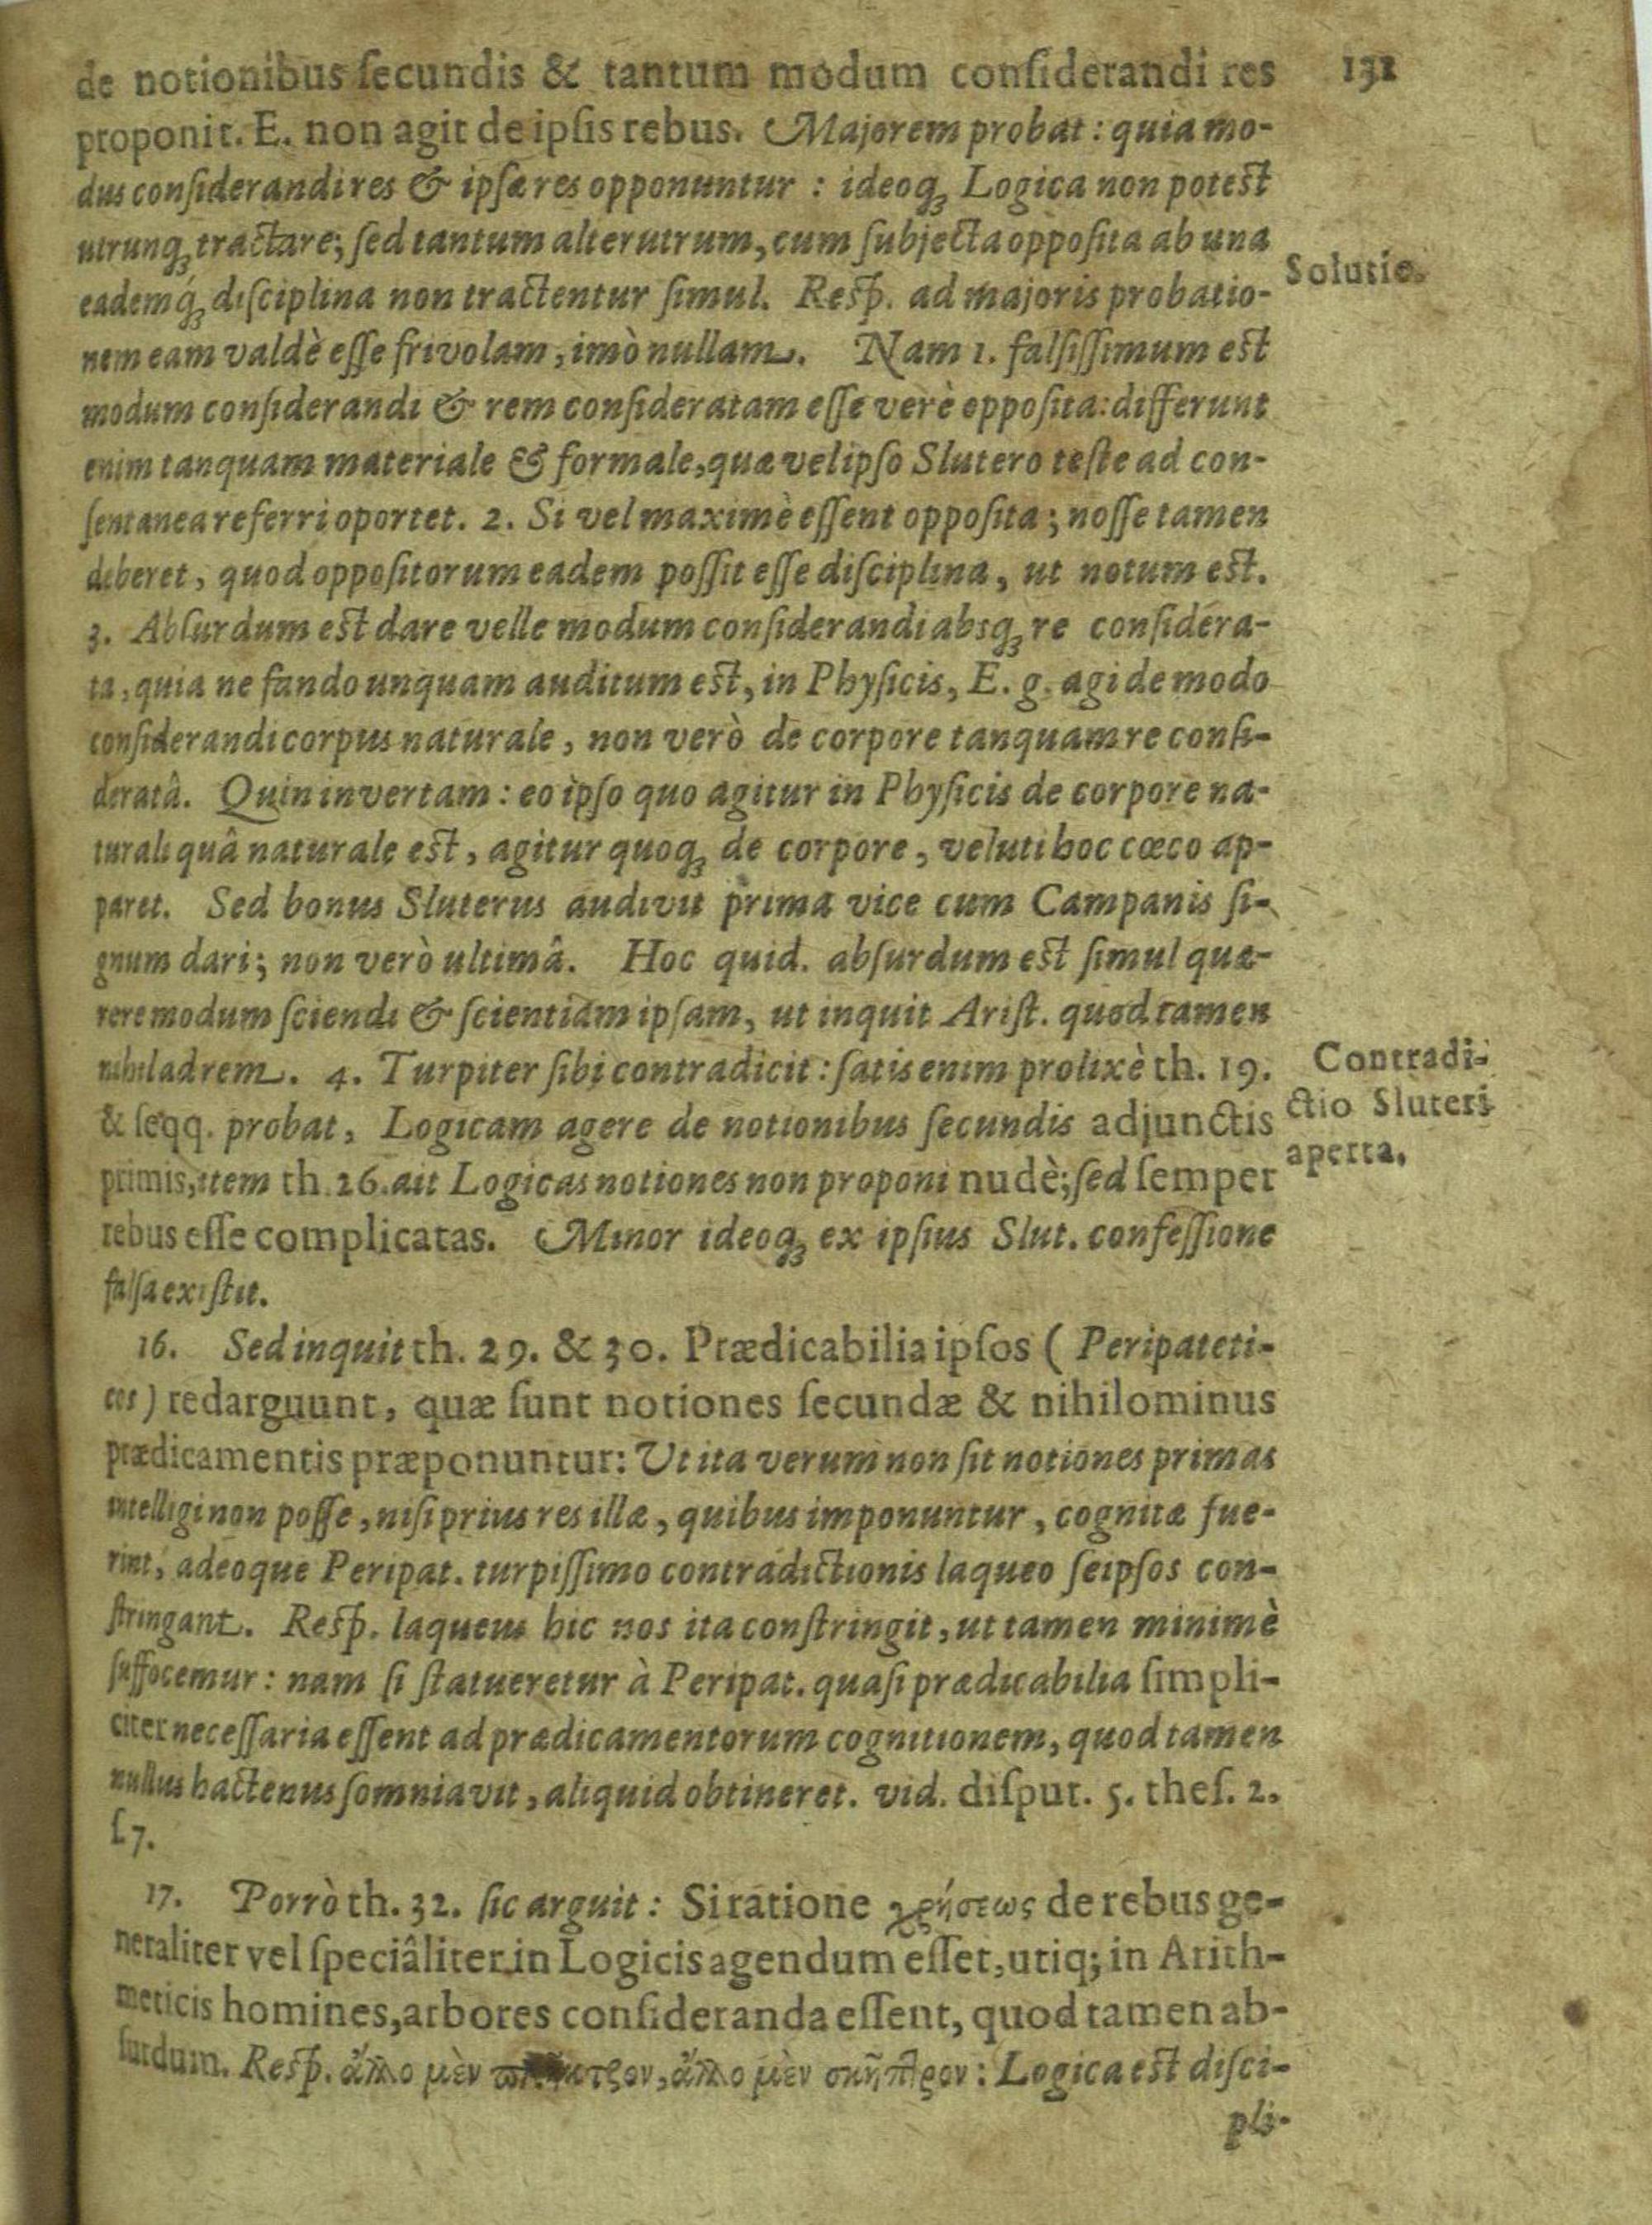 131
de notionibus ſecundis & tantum modum conſiderandi res
proponit. E. non agit de ipſis rebus. Majorem probat : quia mo-
dus conſiderandi res & ipſæ res opponuntur : ideoq; Logica non poteſt
utrunq; tractare; ſed tantum alterutrum, cum ſubjecta oppoſita ab una
eademq́; diſciplina non tractentur ſimul. Reſp. ad majoris probatio-
Solutio.
nem eam valdè eſſe frivolam, imò nullam. Nam 1. falſiſſimum eſt
modum conſiderandi & rem conſideratam eſſe verè oppoſita: differunt
enim tanquam materiale & formale, quæ vel ipſo Slutero teſte ad con-
ſentanea referri oportet. 2. Si vel maximè eſſent oppoſita; noſſe tamen
deberet, quod oppoſitorum eadem poſſit eſſe diſciplina, ut notum eſt.
3. Abſurdum eſt dare velle modum conſiderandi absq; re conſidera-
ta, quia ne fando unquam auditum eſt, in Phyſicis, E. g. agi de modo
conſiderandi corpus naturale, non verò de corpore tanquam re conſi-
deratâ. Quin invertam : eo ipſo quo agitur in Phyſicis de corpore na-
turali quâ naturale eſt, agitur quoq; de corpore, veluti hoc cœco ap-
paret. Sed bonus Sluterus audivit prima vice cum Campanis ſi-
gnum dari; non verò ultimâ. Hoc quid. abſurdum eſt ſimul quæ-
rere modum ſciendi & ſcientiam ipſam, ut inquit Ariſt. quod tamen
nihil ad rem. 4. Turpiter ſibi contradicit : ſatis enim prolixè th. 19.
& ſeqq. probat, Logicam agere de notionibus ſecundis adjunctis
primis, item th. 26. ait Logicas notiones non proponi nudè; ſed ſemper
Contradi-
ctio Sluteri
aperta.
rebus eſſe complicatas. Minor ideoq; ex ipſius Slut. confeſſione
falſa exiſtit.
16. Sed inquit th. 29. & 30. Prædicabilia ipſos ( Peripateti-
cos ) redarguunt, quæ ſunt notiones ſecundæ & nihilominus
prædicamentis præponuntur: Ut ita verum non ſit notiones primas
intelligi non poſſe, niſi prius res illæ, quibus imponuntur, cognitæ fue-
rint, adeoque Peripat. turpiſſimo contradictionis laqueo ſeipſos con-
ſtringant. Reſp. laqueus hic nos ita conſtringit, ut tamen minimè
ſuffocemur : nam ſi ſtatueretur à Peripat. quaſi prædicabilia ſimpli-
citer neceſſaria eſſent ad prædicamentorum cognitionem, quod tamen
nullus hactenus ſomniavit, aliquid obtineret. vid. diſput. 5. theſ. 2.
ſ. 7.
17. Porrò th. 32. ſic arguit : Si ratione χρήσεως de rebus ge-
neraliter vel ſpeciâliter in Logicis agendum eſſet, utiq; in Arith-
meticis homines, arbores conſideranda eſſent, quod tamen ab-
ſurdum. Reſp. ἄλλο μὲν ἄλλο μὲν σκῆπτρον : Logica eſt diſci-
pli-